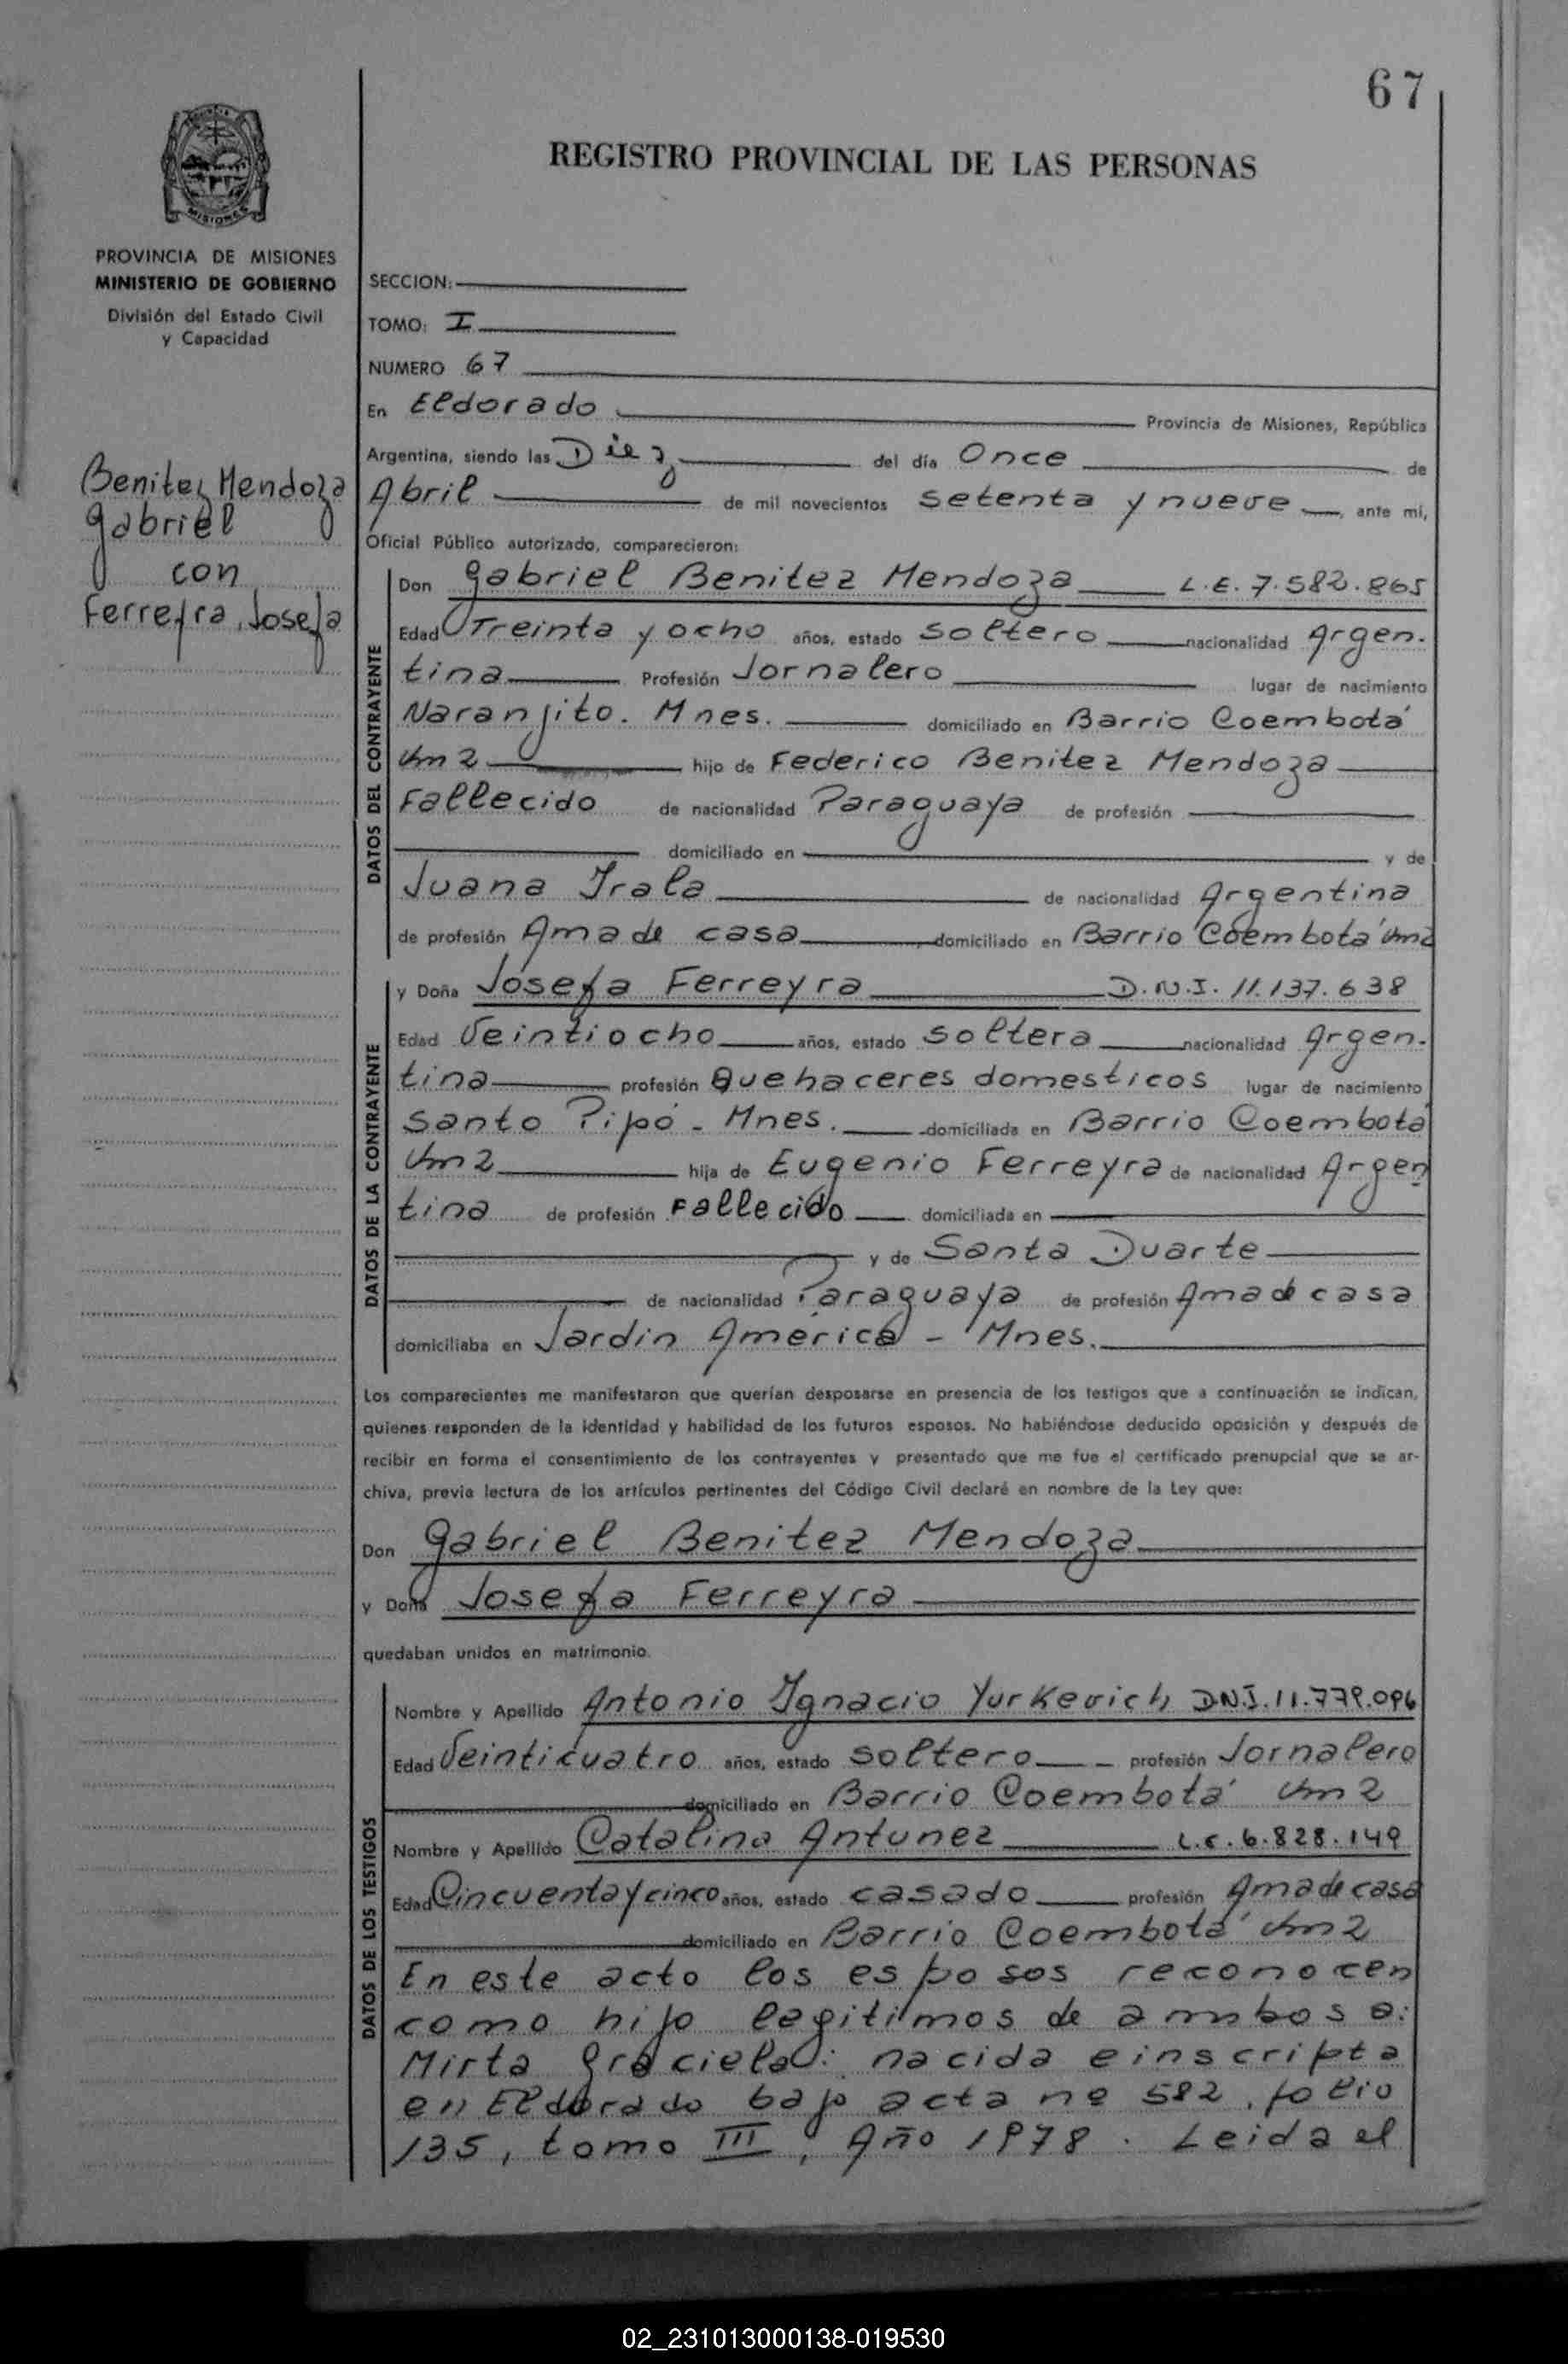 67
REGISTRO PROVINCIAL DE LAS PERSONAS
MISIONES
PROVINCIA DE MISIONES
MINISTERIO DE GOBIERNO
División del Estado Civil
y Capacidad
SECCION:
TOMO: I
NUMERO 67
Benitez Mendoza
Gabriel
con
Ferreyra, Josefa
En Eldorado Provincia de Misiones, República
Argentina, siendo las Diez del día Once de
Abril de mil novecientos setenta y nueve, ante mí,
Oficial Público autorizado, comparecieron:
DATOS DEL CONTRAYENTE
Don Gabriel Benitez Mendoza L.E. 7.582.865
Edad Treinta y ocho años, estado soltero nacionalidad Argen-
tina Profesión Jornalero lugar de nacimiento
Naranjito. Mnes. domiciliado en Barrio Coembotá
Km 2 hijo de Federico Benitez Mendoza
Fallecido de nacionalidad Paraguaya de profesión
domiciliado en y de
Juana Irala de nacionalidad Argentina
de profesión Ama de casa domiciliado en Barrio Coembotá Km 2
DATOS DE LA CONTRAYENTE
y Doña Josefa Ferreyra D.N.I. 11.137.638
Edad Veintiocho años, estado soltera nacionalidad Argen-
tina profesión Quehaceres domesticos lugar de nacimiento
Santo Pipó - Mnes. domiciliada en Barrio Coembotá
Km 2 hija de Eugenio Ferreyra de nacionalidad Argen
tina de profesión Fallecido domiciliada en
y de Santa Duarte
de nacionalidad Paraguaya de profesión Ama de casa
domiciliaba en Jardin América - Mnes.
Los comparecientes me manifestaron que querían desposarse en presencia de los testigos que a continuación se indican,
quienes responden de la identidad y habilidad de los futuros esposos. No habiéndose deducido oposición y después de
recibir en forma el consentimiento de los contrayentes y presentado que me fue el certificado prenupcial que se ar-
chiva, previa lectura de los artículos pertinentes del Código Civil declaré en nombre de la Ley que:
Don Gabriel Benitez Mendoza
y Doña Josefa Ferreyra
quedaban unidos en matrimonio.
DATOS DE LOS TESTIGOS
Nombre y Apellido Antonio Ignacio Yurkevich D.N.I. 11.779.096
Edad Veinticuatro años, estado soltero profesión Jornalero
domiciliado en Barrio Coembotá Km 2
Nombre y Apellido Catalina Antunez L.C. 6.828.149
Edad Cincuenta y cinco años, estado casado profesión Ama de casa
domiciliado en Barrio Coembotá Km 2
En este acto los esposos reconocen
como hijo legitimos de ambos a:
Mirta Graciela: nacida e inscripta
en Eldorado bajo acta nº 582, folio
135, tomo III, Año 1978. Leida el
02_231013000138-019530